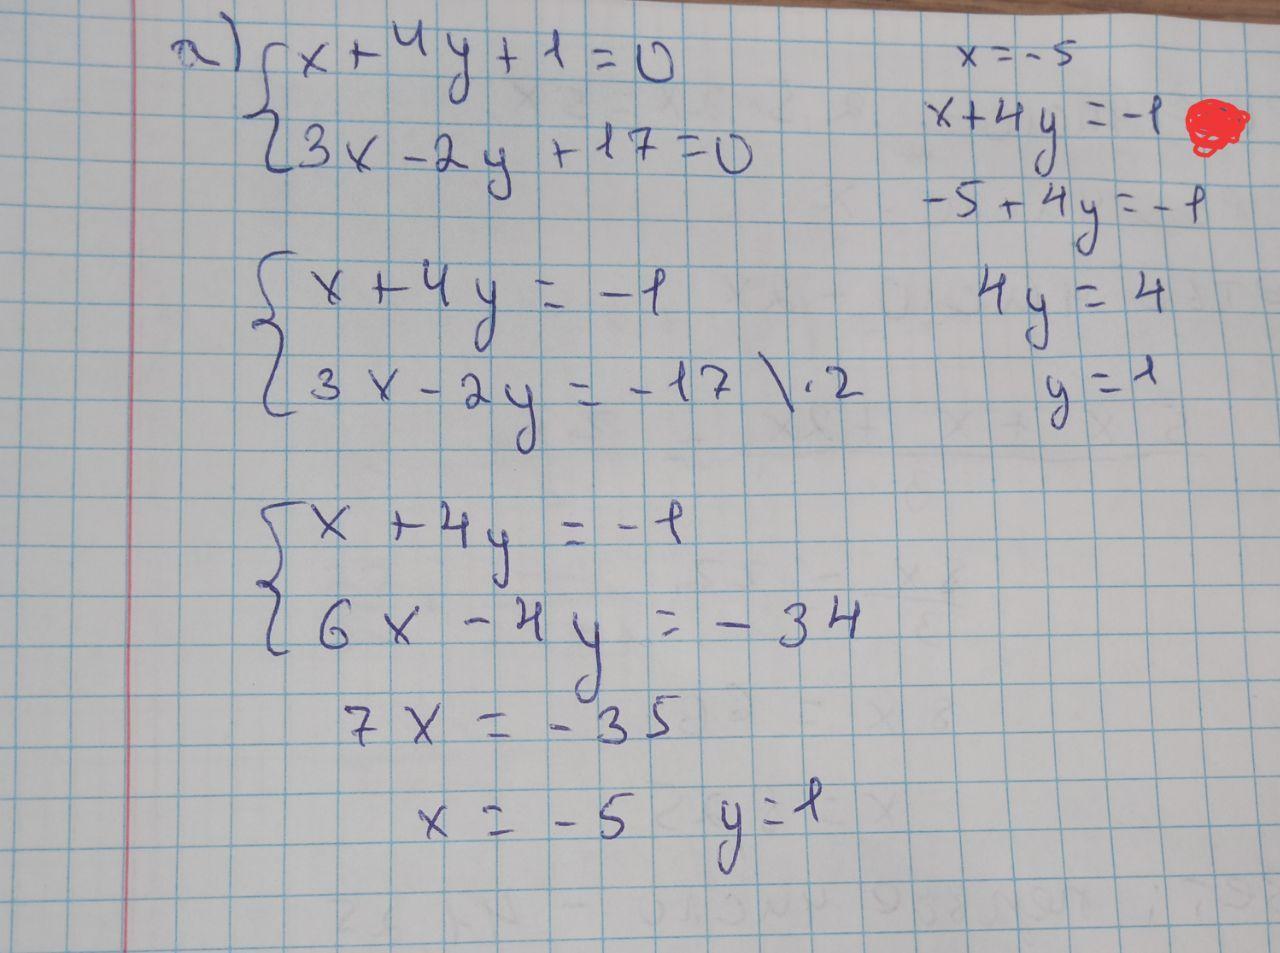 а) x + 4y + 1 = 0
3x - 2y + 17 = 0
x + 4y = -1
3x - 2y = -17 \ · 2
x + 4y = -1
6x - 4y = -34
7x = -35
x = -5 y = 1
x = -5
x + 4y = -1
-5 + 4y = -1
4y = 4
y = 1